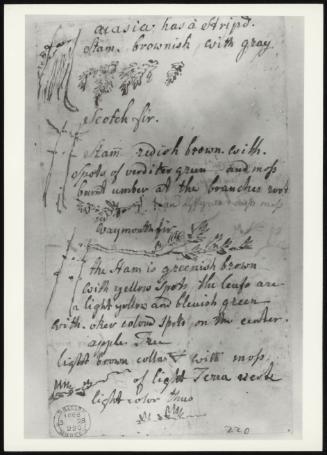 acasia has a stripd.
Stam. brownish with gray.
Scotch fir.
Stam redish brown with.
Spots of verditer green and moss
burnt umber at the branches
moss
Waymouth fir
the Stam is greenish brown
with yellow spots the leafs are
light yellow and bleuish green
with oker colourd spots on the center.
apple Tree
light brown collar with moss
of light Terra verte
light color thus
220